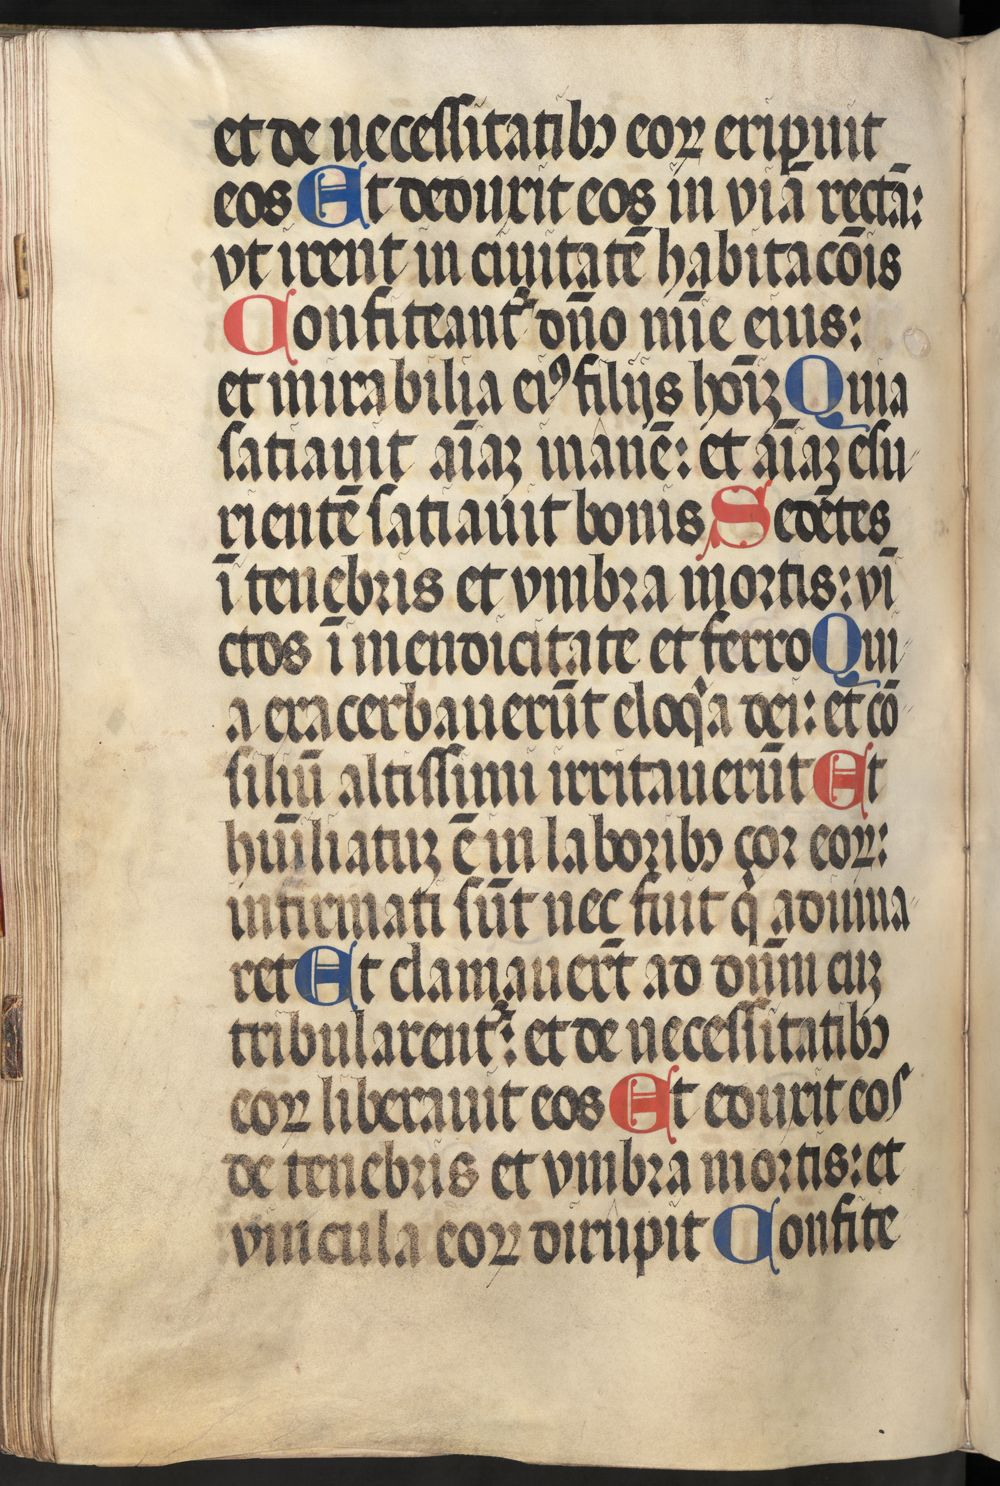 et de necessitatibꝫ eoꝝ eripuit
eos Et deduxit eos in viā rectā:
vt irent in ciuitatē habitacōis
Confiteantᷣ dn̄o mīe eius:
et mirabilia eiꝰ filijs hoīꝫ Quia
satiauit aīaꝫ inanē: et aīaꝫ esu-
rientē satiauit bonis Sedētes
ī tenebris et vmbra mortis: vī
ctos ī mendicitate et ferro Qui-
a exacerbauerūt eloqͥa dei: et cō
siliū altissimi irritauerūt Et
hūiliatuꝫ ē in laboribꝫ cor eoꝝ:
infirmati sūt nec fuit qͥ adiuua-
ret Et clamauert̄ ad dn̄m cuꝫ
tribularentᷣ: et de necessitatibꝫ
eoꝝ liberauit eos Et eduxit eos
de tenebris et vmbra mortis: et
vincula eoꝝ dirupit Confite